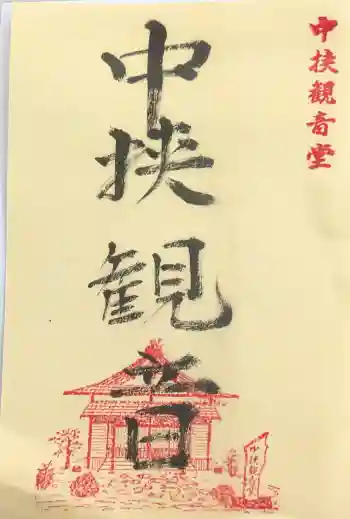 中挟観音堂
中挟観音
中挟観音